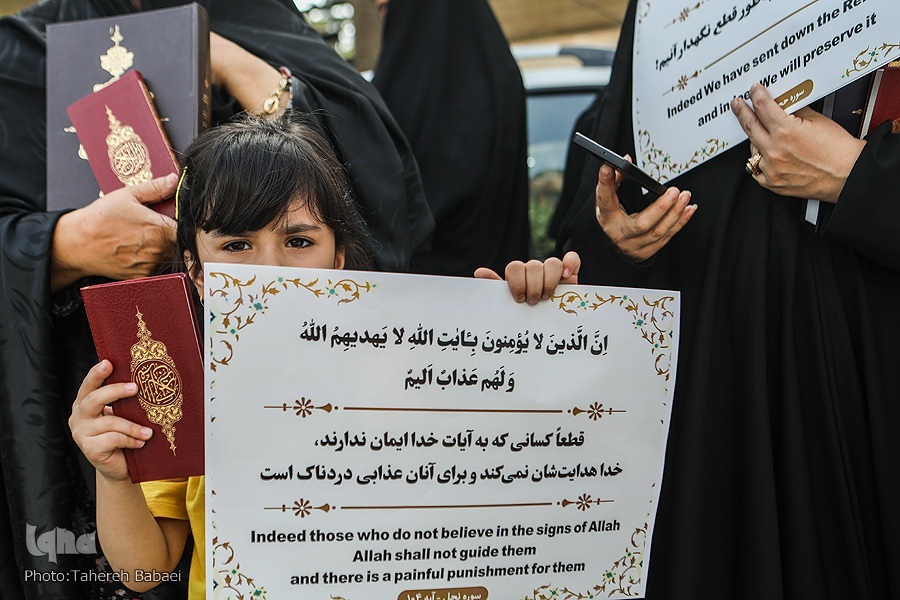 طور قطع نگهدار آنیم!
Indeed We have sent down the
and indeed We will preserve it
اِنَّ الَّذینَ لا یُؤمِنونَ بِـٔایٰتِ اللهِ لا یَهدیهِمُ اللهُ
وَ لَهُم عَذابٌ اَلیمٌ
قطعاً کسانی که به آیات خدا ایمان ندارند،
خدا هدایت‌شان نمی‌کند و برای آنان عذابی دردناک است
Indeed those who do not believe in the signs of Allah
Allah shall not guide them
and there is a painful punishment for them
سوره نحل - آیه ۱۰۴
iqna
Photo:Tahereh Babaei